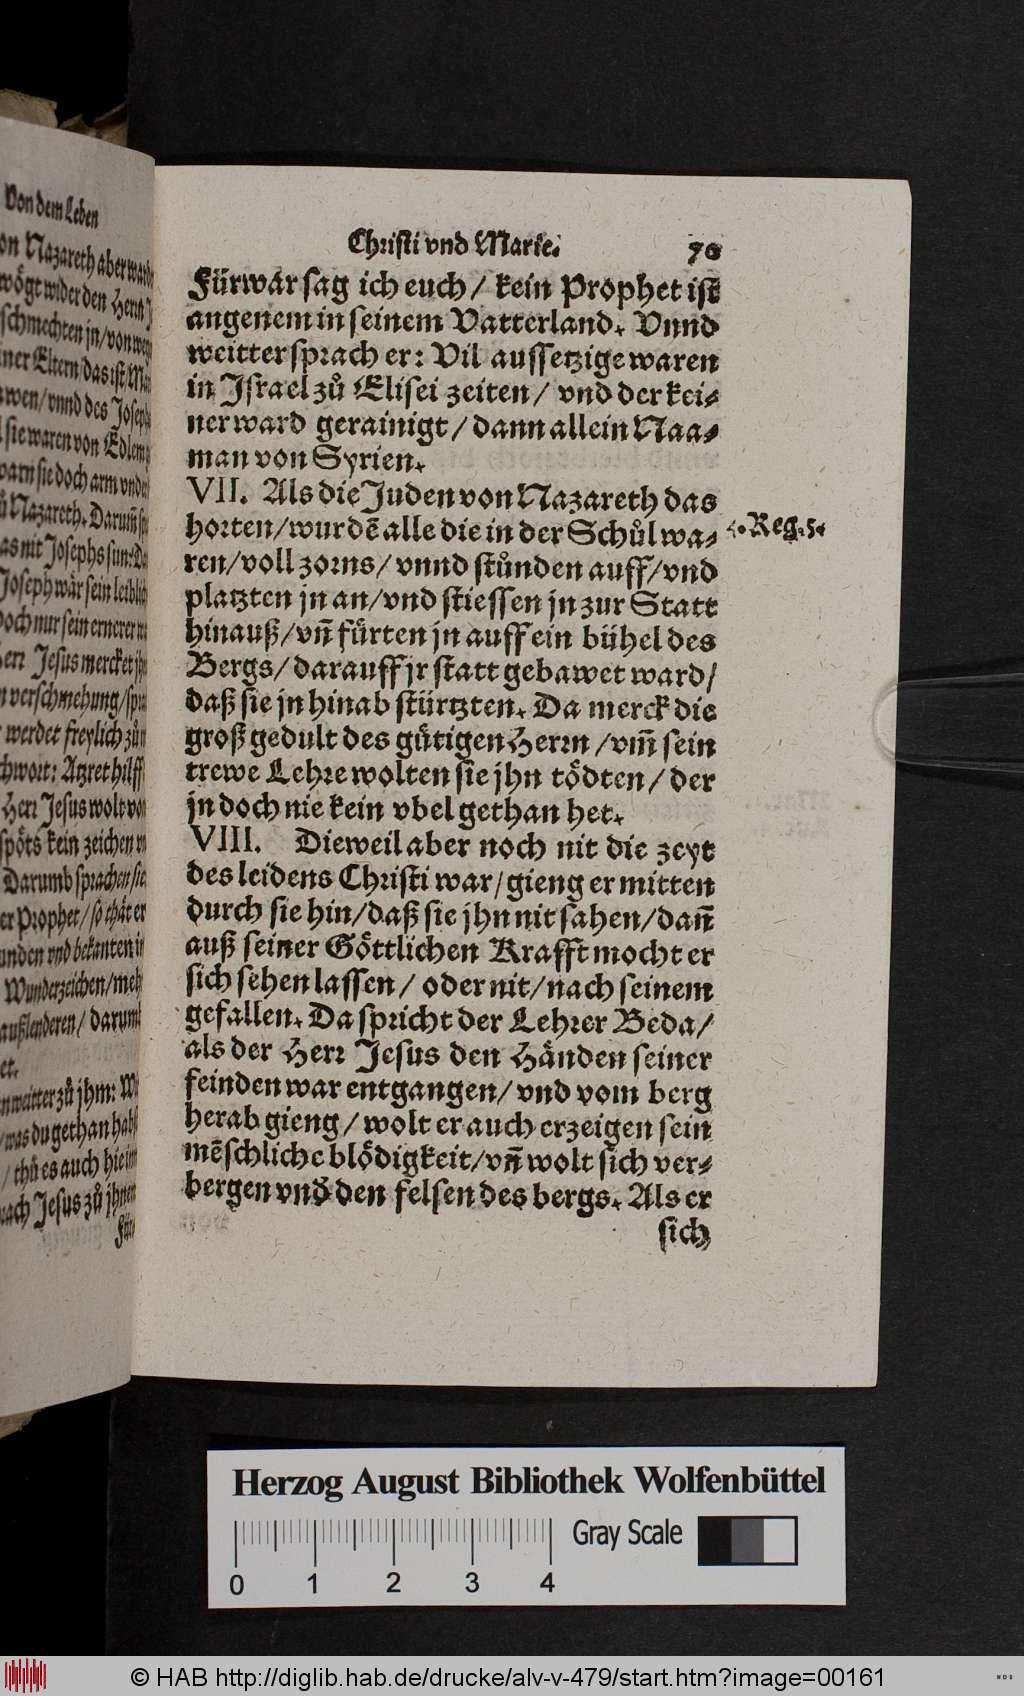 Von dem Leben
on Nazareth aber ward
wögt wider den Herrn J
schmechten jn/ von weg
iner Eltern/ das ist/ Ma
awen/ vnnd des Joseph
sie waren von Edlem
warn sie doch arm vnd
ů Nazareth. Darum̃ sp
as nit Josephs sun: Da
Joseph wär sein leiblich
doch nur sein ernerer
herr Jesus mercket jh
n verschmehung/ spra
werdet freylich zů
chwort: Artzet hilff
Herr Jesus wolt von
spöts kein zeichen
Darumb sprachen sie
er Prophet/ so thät er
unden vnd bekanten in
Wunderzeichen/ meh
außlenderen/ darumb
et.
n weitter zů jhm: W
/ was du gethan hab
/ thů es auch hie in
ach Jesus zů jhnen
Für
Christi vnd Marie. 70
Fürwar sag ich euch/ kein Prophet ist
angenem in seinem Vatterland. Vnnd
weitter sprach er: Vil aussetzige waren
in Israel zů Elisei zeiten/ vnd der kei-
ner ward gerainigt/ dann allein Naa-
man von Syrien.
VII. Als die Juden von Nazareth das
horten/ wurdē alle die in der Schůl wa-
ren/ voll zorns/ vnnd stůnden auff/ vnd
platzten jn an/ vnd stiessen jn zur Statt
hinauß/ vñ fürten jn auff ein bühel des
Bergs/ darauff jr statt gebawet ward/
daß sie jn hinab stürtzten. Da merck die
groß gedult des gütigen Herrn/ vm̃ sein
trewe Lehre wolten sie jhn tödten/ der
jn doch nie kein vbel gethan het.
4. Reg. 5.
VIII. Dieweil aber noch nit die zeyt
des leidens Christi war/ gieng er mitten
durch sie hin/ daß sie jhn nit sahen/ dañ
auß seiner Göttlichen Krafft mocht er
sich sehen lassen/ oder nit/ nach seinem
gefallen. Da spricht der Lehrer Beda/
als der Herr Jesus den Händen seiner
feinden war entgangen/ vnd vom berg
herab gieng/ wolt er auch erzeigen sein
mēschliche blödigkeit/ vñ wolt sich ver-
bergen vnd̕ den felsen des bergs. Als er
sich
Herzog August Bibliothek Wolfenbüttel
Gray Scale
0 1 2 3 4
© HAB http://diglib.hab.de/drucke/alv-v-479/start.htm?image=00161